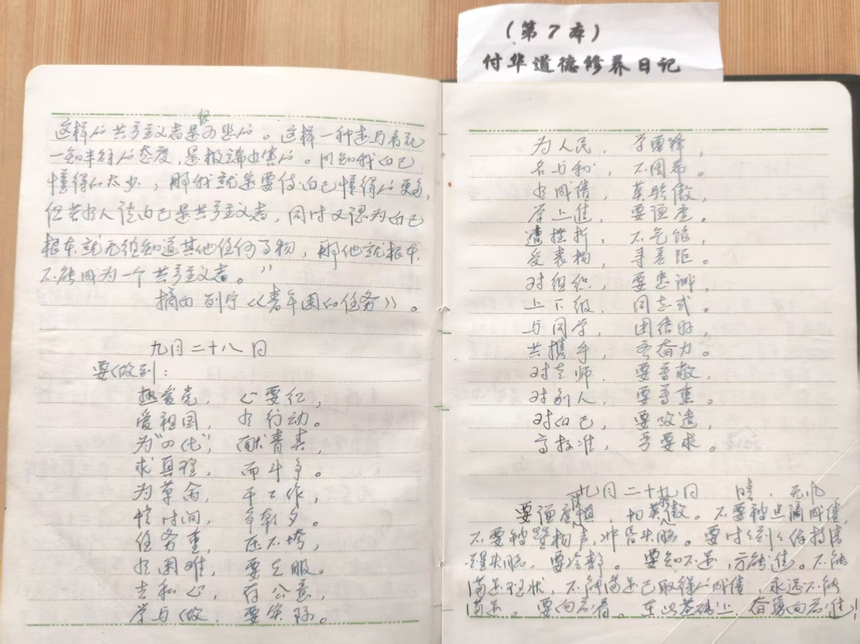 这样的共产主义者是很可悲的。这样一种走马看花
一知半解的态度,是极端有害的。如知我自己
懂得的太少,那我就是要使自己懂得的更多,
但若有人说自己是共产主义者,同时又认为自己
根本就无须知道其他任何事物,那他就根本
不能成为一个共产主义者。”
摘自列宁《青年团的任务》。
九月二十八日
要做到:
热爱党, 心要红,
爱祖国, 有行动。
为“四化”, 献青春,
求真理, 而斗争。
为革命, 干工作,
惜时间, 争朝夕。
任务重, 压不垮,
有困难, 要克服。
去私心, 存公意,
学与做, 要实际。
(第7本)
付华道德修养日记
为人民, 学雷锋,
名与利, 不图希。
有成绩, 莫骄傲,
学上进, 要谦虚。
遭挫折, 不气馁,
受表扬, 寻差距。
对组织, 要忠诚,
上下级, 同志式。
与同学, 团结好,
共携手, 齐奋力。
对老师, 要尊敬,
对别人, 要尊重。
对自己, 要改造,
高标准, 严要求。
九月二十九日 晴,无风
要谦虚,切莫傲。不要被点滴成绩,
不要被赞扬声,冲昏头脑。要时刻保持清
醒头脑,要冷静。要知不足,方能进。不能
满足现状,不能满足已取得的成绩,永远不能
满足。要向前看。在此基础上,奋勇向前进!